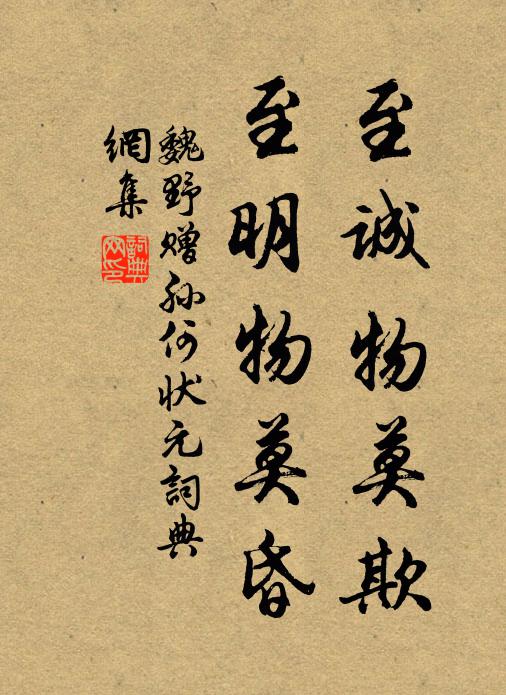 至誠物莫欺
至明物莫昏
魏野贈孫何狀元詞典
網集
詞典
网印